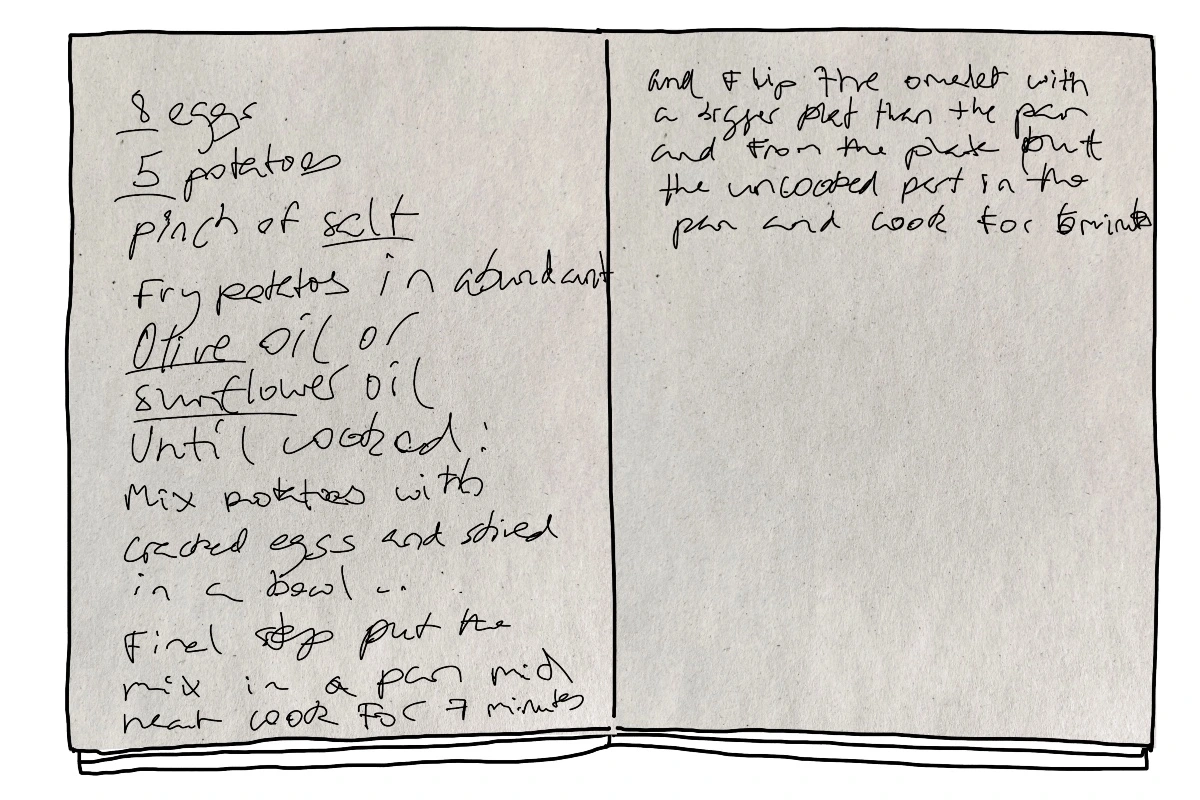 8 eggs
5 potatoes
pinch of salt
Fry potatos in abundant
Olive oil or
sunflower oil
Until cooked:
Mix potatoes with
cracked eggs and stired
in a bowl ...
Final step put the
mix in a pan mid
heat cook For 7 minutes
and Flip the omelet with
a bigger plat than the pan
and From the plate put
the uncooked part in the
pan and cook For 5 minuts